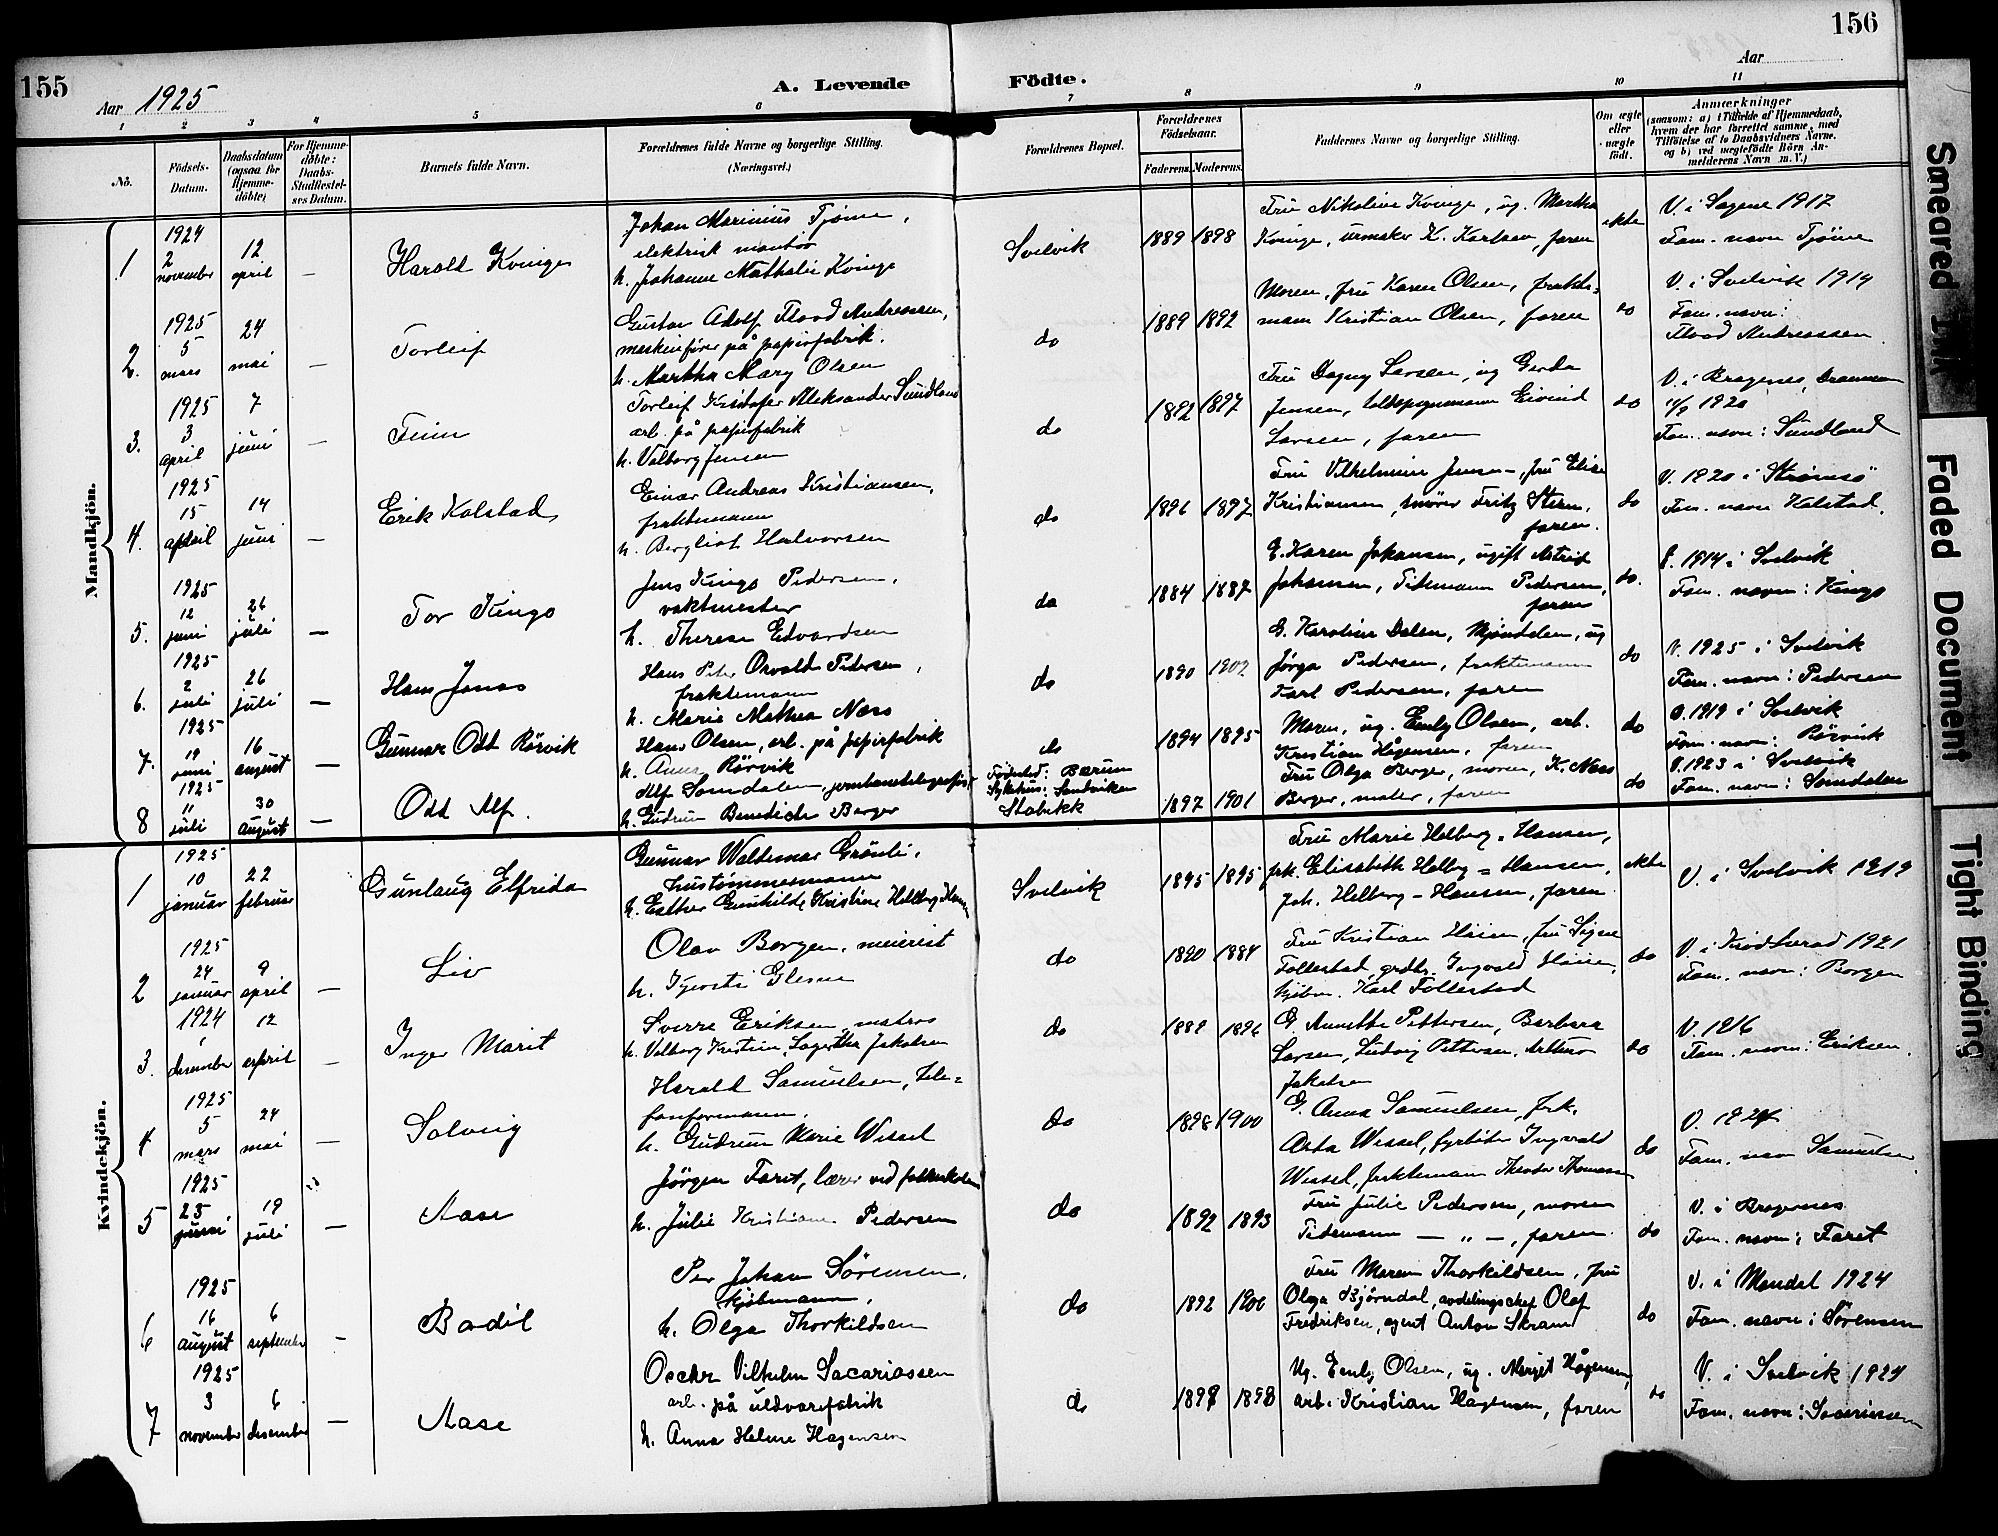 155
156
Aar 1925
A. Levende Födte.
Aar
1 2 3 4 5 6 7 8 9 10 11
No.
Födsels-
Datum.
Daabsdatum
(ogsaa for
Hjemme-
döbte)
For Hjemme-
döbte:
Daabs-
Stadfæstel-
ses Datum.
Barnets fulde Navn.
Forældrenes fulde Navne og borgerlige Stilling.
(Næringsvei.)
Forældrenes Bopæl.
Forældrenes
Födselsaar.
Faderens. Moderens.
Faddernes Navne og borgerlige Stilling.
Om ægte
eller
uægte
födt.
Anmærkninger
(saasom: a) i Tilfælde af Hjemmedaab,
hvem der har forrettet samme, med
Tilföielse af to Daabsvidners Navne,
og b) ved uægtefödte Börn An-
melderens Navn m. V.)
Mandkjön.
1
1924
2
november
12
april
—
Harald Kvinge
Johan Marinius Tjøme,
elektrisk montør
h. Johanne Mathalie Kvinge
Svelvik
1889 1898
Fru Nikoline Kvinge, ug. Martha
Kvinge, urmaker K. Karlsen, faren
ekte
V. i Sagene 1917
Fam. navn Tjøme
2.
1925
5
mars
24
mai
—
Torleif
Gustav Adolf Flood Andreassen,
maskinfører på papirfabrik.
h. Martha Mary Olsen
do
1889 1892
Moren, fru Karen Olsen, frakte-
mann Kristian Olsen, faren
do
V. i Svelvik 1914
Fam. navn:
Flood Andreassen.
3.
1925
3
april
7
juni
—
Finn
Torleif Kristofer Aleksander Sundland
arb. på papirfabrik
h. Valborg Jensen
do
1892 1897
Fru Dagny Larsen, ug Gerda
Jensen, Eivind
Larsen, faren
do
V. i Bragenes, Drammen
1920
Fam. navn: Sundland
4.
1925
15
april
14
juni
—
Erik Kolstad
Einar Andreas Kristiansen,
fraktemann
h. Bergliot Halvorsen
do
1896 1897
Fru Vilhelmine Jensen, fru Elise
Kristiansen, murer Fritz Steen,
faren.
do
V. 1920 i Strømsö
Fam. navn Kolstad.
5.
1925
12
juni
26
juli
—
Tor Kingo
Jens Kingo Pedersen,
vaktmester
h. Therese Edvardsen
do
1884 1887
G. Karen Johansen, ugift Astrid
Johansen, Tidemann Pedersen,
faren
do.
V. 1914 i Svelvik
Fam. navn: Kingo
6.
1925
2
juli
26
juli
—
Hans Jonas
Hans Peter Osvald Pedersen,
fraktemann
h. Marie Mathea Næss
do
1890 1902
G. Karoline Dalen, Mjøndalen, ug
Jørga Pedersen, fraktemann
Karl Pedersen, faren
do
V. 1925 i Svelvik
Fam. navn: Pedersen
7.
1925
19
juni
16
august
—
Gunnar Odd Rörvik
Hans Olsen, arb. på papirfabrik
h. Anna Rörvik
do
1894 1895
Moren, ug. Emly Olsen, arb.
Kristian Hågensen, faren
do
V. 1919 i Svelvik
Fam. navn: Rörvik
8
1925
11
juli
30
august
—
Odd Alf.
Alf Somdalen, jernbanetelegrafist
h. Gudrun Benedicte Berger
Fødested: Bærum
Sykehus: Sandviken
Stabekk
1897 1901
Fru Olga Berger, moren, K. Næss
Berger, maler, faren
do
V. 1923 i Svelvik
Fam. navn: Somdalen
Kvindekjön.
1
1925
10
januar
22
februar
Gunlaug Elfrida
Gunnar Waldemar Grönli,
hustømmermann
h. Esther Gunhilde Kristine Helberg Hansen
Svelvik
1895 1895
Fru Marie Helberg-Hansen,
frk. Elisabeth Helberg-Hansen,
Joh. Helberg-Hansen, faren
ekte
V. i Svelvik 1919
2
1925
24
januar
9
april
—
Liv
Olav Borgen, meierist
h. Kjersti Glesne
do
1890 1884
Fru Kristian Höien, fru Signe
Tollefstad, grdbr. Ingvald Höien,
kjöbm. Karl Tollefstad
do
V. i Krødsherad 1921
Fam. navn: Borgen
3.
1924
1
desember
12
april
—
Inger Marit
Sverre Eriksen, matros
h. Valborg Kristine Lagertha Jakobsen
do
1889 1896
G. Annette Pettersen, Barbara
Larsen, Ludvig Pettersen, Arthur
Jakobsen
do
V. 1916
Fam. navn: Eriksen.
4
1925
5
mars
24
mai
—
Solveig
Harald Samuelsen, tele-
fonformann.
h. Gudrun Marie Wessel
do
1898 1900
G. Anna Samuelsen, frk.
Asta Wessel, fyrbøter Ingvald
Wessel, fraktemann Theodor Thomassen
do
V. 1924
Fam. navn Samuelsen.
5
1925
23
juni
19
juli
—
Aase
Jörgen Faret, lærer ved folkeskolen
h. Julie Kristiane Pedersen
do
1892 1893
Fru Julie Pedersen, moren
Tidemann — „ —, faren.
do
V. i Bragernes
Fam. navn: Faret
6
1925
16
august
6
september
—
Bodil
Per Johan Sörensen,
kjöbmann,
h. Olga Thorkildsen
do
1892 1900
Fru Maren Thorkildsen, fru
Olga Bjørndal, avdelingschef Olaf
Fredriksen, agent Anton Skram
do
V. i Mandal 1924
Fam. navn: Sörensen
7
1925
3
november
6
desember
—
Aase
Oscar Vilhelm Sacariassen
arb. på uldvarefabrik
h. Anna Helene Hagensen
do
1898 1898
Ug. Emly Olsen, ug. Margit Hågensen,
arb. Kristian Hågensen, faren
do
V. i Svelvik 1924
Fam. navn: Sacariassen
Smeared Ink
Faded Document
Tight Binding